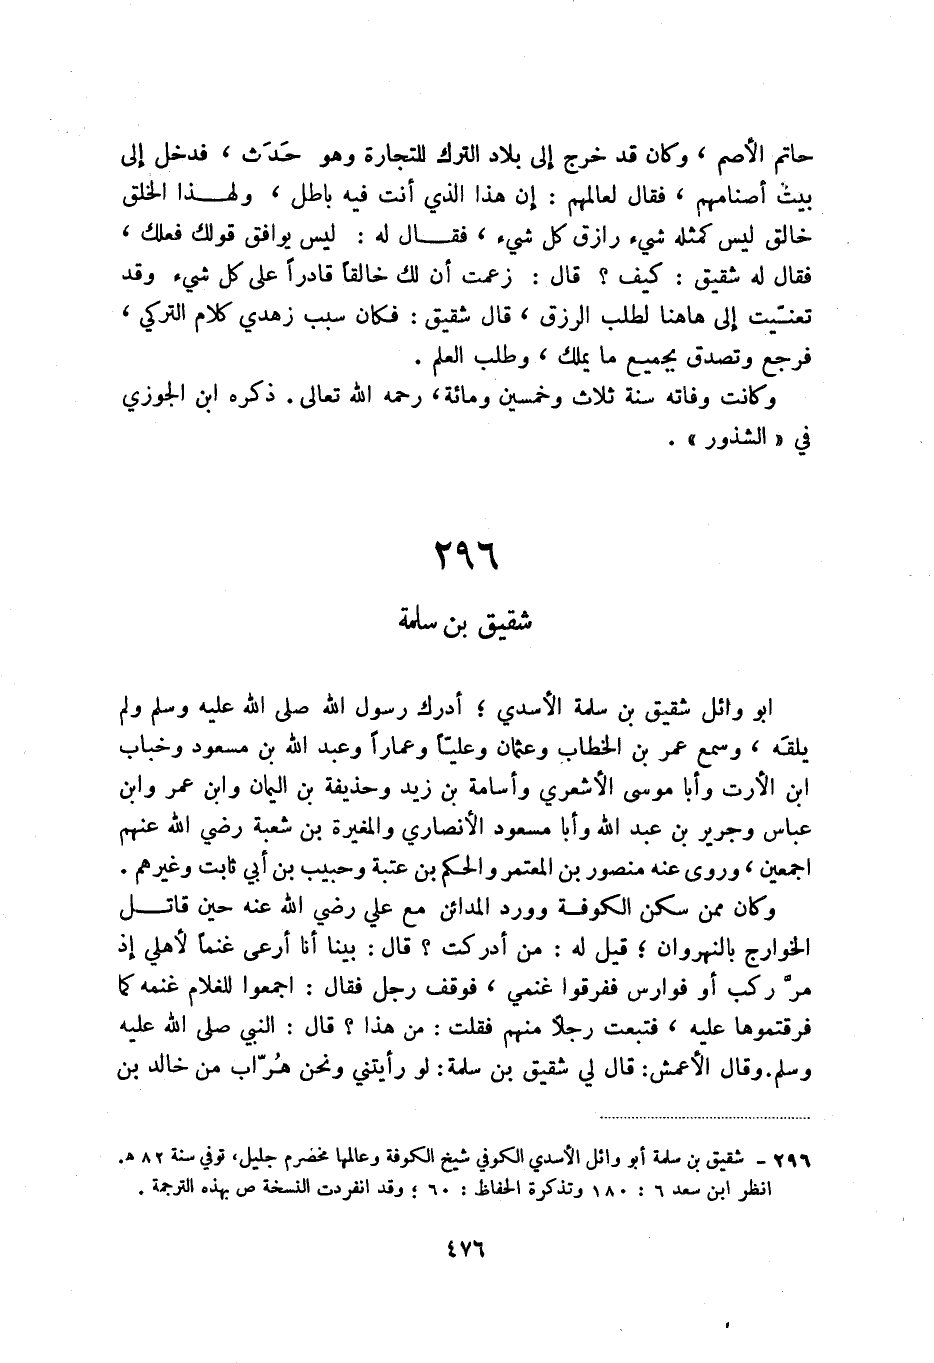 حاتم الأصم ، وكان قد خرج إلى بلاد الترك للتجارة وهو حَدَث ، فدخل إلى
بيت أصنامهم ، فقال لعالمهم : إن هذا الذي أنت فيه باطل ، ولهذا الخلق
خالق ليس كمثله شيء رازق كل شيء ، فقال له : ليس يوافق قولك فعلك ،
فقال له شقيق : كيف ؟ قال : زعمت أن لك خالقاً قادراً على كل شيء وقد
تعنّيت إلى هاهنا لطلب الرزق ، قال شقيق : فكان سبب زهدي كلام التركي ،
فرجع وتصدق بجميع ما يملك ، وطلب العلم .
وكانت وفاته سنة ثلاث وخمسين ومائة، رحمه الله تعالى. ذكره ابن الجوزي
في « الشذور » .
٢٩٦
شقيق بن سلمة
ابو وائل شقيق بن سلمة الأسدي ؛ أدرك رسول الله صلى الله عليه وسلم ولم
يلقَه ، وسمع عمر بن الخطاب وعثمان وعليّاً وعماراً وعبد الله بن مسعود وخباب
ابن الأرت وأبا موسى الأشعري وأسامة بن زيد وحذيفة بن اليمان وابن عمر وابن
عباس وجرير بن عبد الله وأبا مسعود الأنصاري والمغيرة بن شعبة رضي الله عنهم
اجمعين ، وروى عنه منصور بن المعتمر والحكم بن عتبة وحبيب بن أبي ثابت وغيرهم .
وكان ممن سكن الكوفة وورد المدائن مع علي رضي الله عنه حين قاتل
الخوارج بالنهروان ؛ قيل له : من أدركت ؟ قال : بينا أنا أرعى غنماً لأهلي إذ
مرّ ركب أو فوارس ففرقوا غنمي ، فوقف رجل فقال : اجمعوا للغلام غنمه كما
فرقتموها عليه ، فتبعت رجلاً منهم فقلت : من هذا ؟ قال : النبي صلى الله عليه
وسلم. وقال الأعمش: قال لي شقيق بن سلمة: لو رأيتني ونحن هُرّاب من خالد بن
٢٩٦ - شقيق بن سلمة أبو وائل الأسدي الكوفي شيخ الكوفة وعالمها مخضرم جليل، توفي سنة ٨٢ هـ.
انظر ابن سعد ٦ : ١٨٠ وتذكرة الحفاظ : ٦٠ ؛ وقد انفردت النسخة ص بهذه الترجمة .
٤٧٦